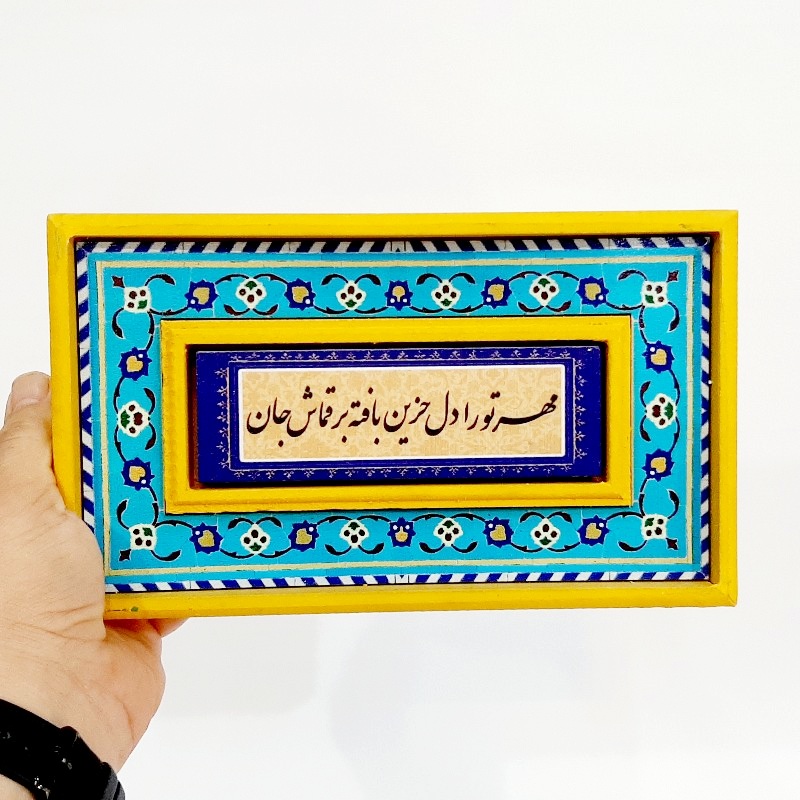 مهر تو را دل حزین بافته بر قماش جان